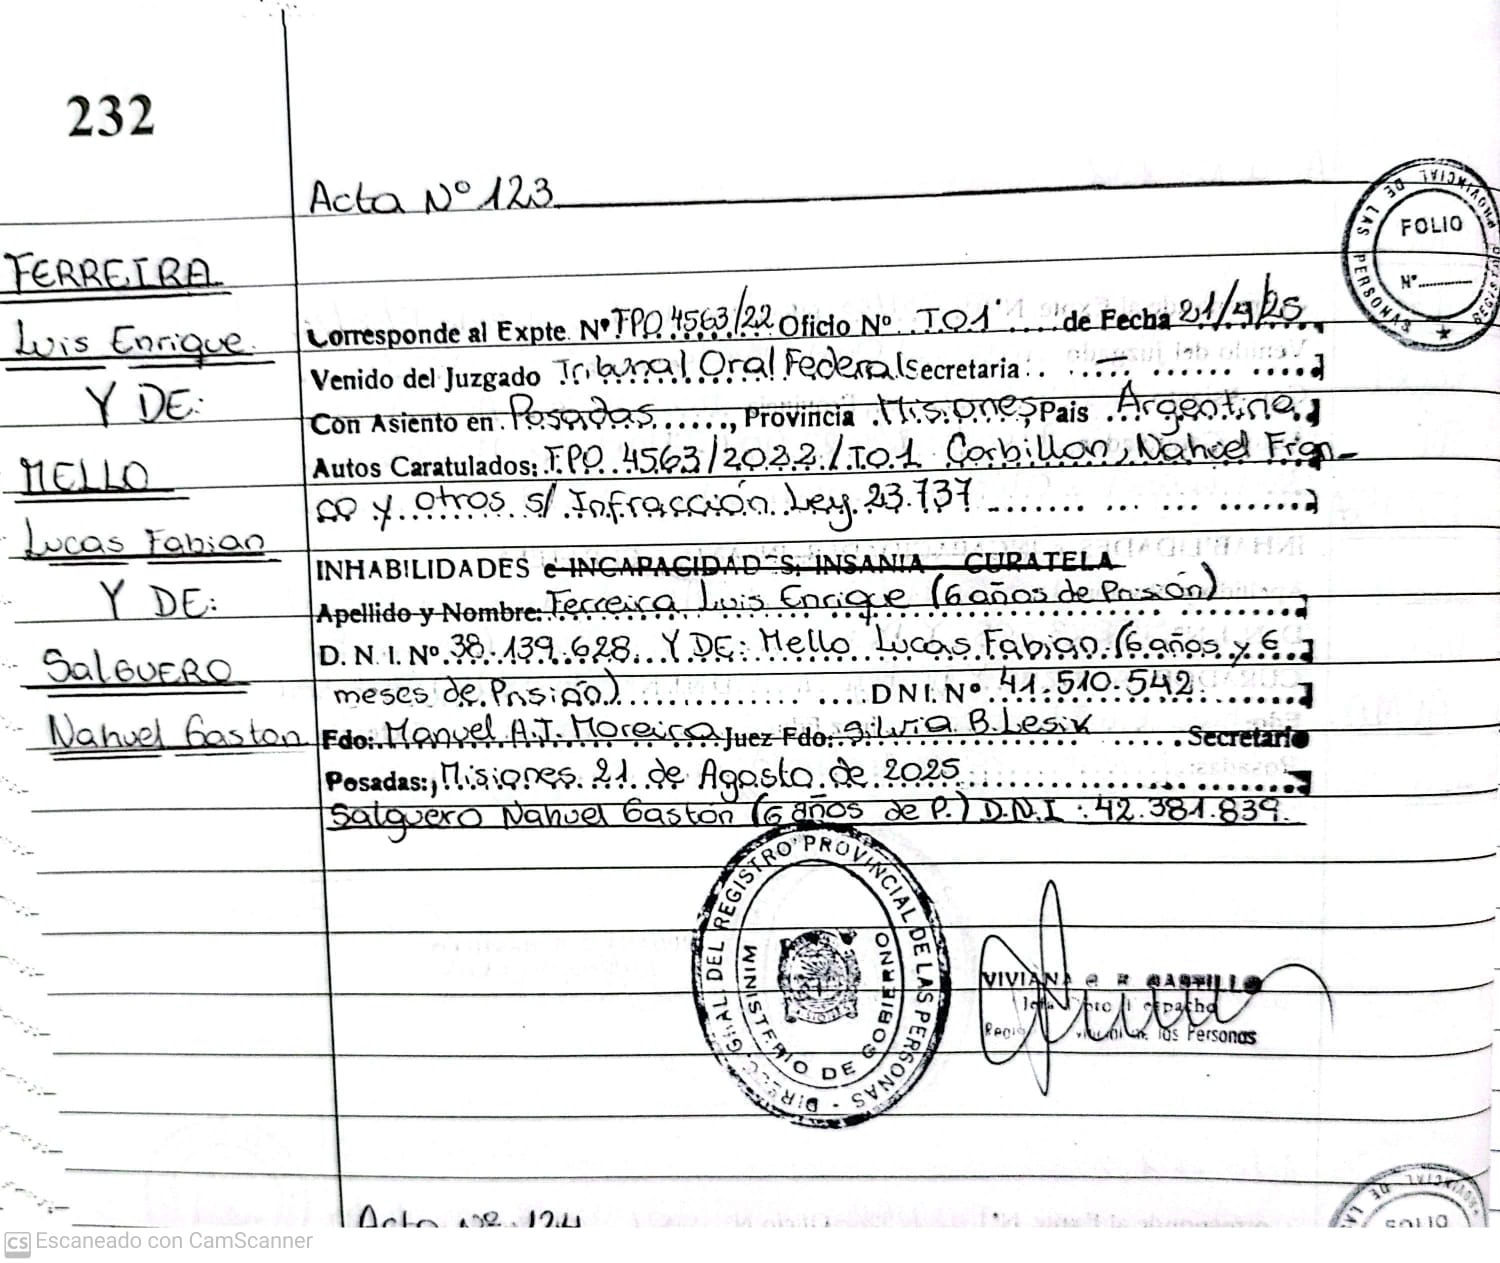 232
Acta Nº 123
FERREIRA
Luis Enrique.
Y DE:
MELLO
Lucas Fabian
Y DE:
SALGUERO
Nahuel Gaston
Corresponde al Expte. Nº FPO 4563/22 Oficio Nº TO1 de Fecha 21/4/25
Venido del Juzgado Tribunal Oral Federal Secretaria
Con Asiento en Posadas, Provincia Misiones, Pais Argentina
Autos Caratulados: FPO 4563/2022/TO1 Corbillon, Nahuel Fran-
co y otros s/ Infracción Ley. 23.737
INHABILIDADES e INCAPACIDADES, INSANIA - CURATELA
Apellido y Nombre: Ferreira Luis Enrique (6 años de Prisión)
D. N. I. Nº 38.139.628. Y DE: Mello Lucas Fabian (6 años y 6
meses de Prisión) DNI. Nº 41.510.542.
Fdo: Manuel A.J. Moreira Juez Fdo: Silvia B. Lesik Secretario
Posadas:, Misiones. 21 de Agosto de 2025
Salguero Nahuel Gastón (6 años de P.) D.N.I : 42.381.839.
DIRECC. GRAL DEL REGISTRO PROVINCIAL DE LAS PERSONAS -
MINISTERIO DE GOBIERNO
VIVIANA CASTILLO
Despacho
las Personas
PROVINCIAL DE LAS PERSONAS
FOLIO
Nº
Acta Nº 124
FOLIO
CS Escaneado con CamScanner